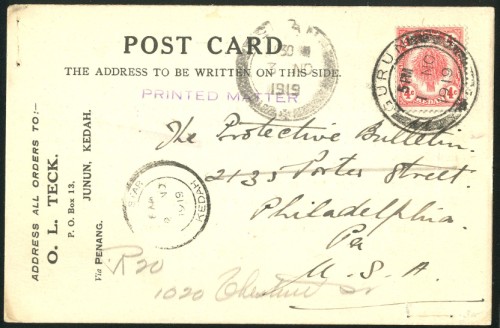 POST CARD
THE ADDRESS TO BE WRITTEN ON THIS SIDE.
PRINTED MATTER
ADDRESS ALL ORDERS TO:—
O. L. TECK.
P. O. Box 13,
JUNUN, KEDAH.
Via PENANG.
3 NO
1919
GURUN
5 PM
NO
1919
KEDAH
1919
The Protective Bulletin.
2135 Porter Street.
Philadelphia.
Pa
U. S. A.
R 20
1020 Chestnut St